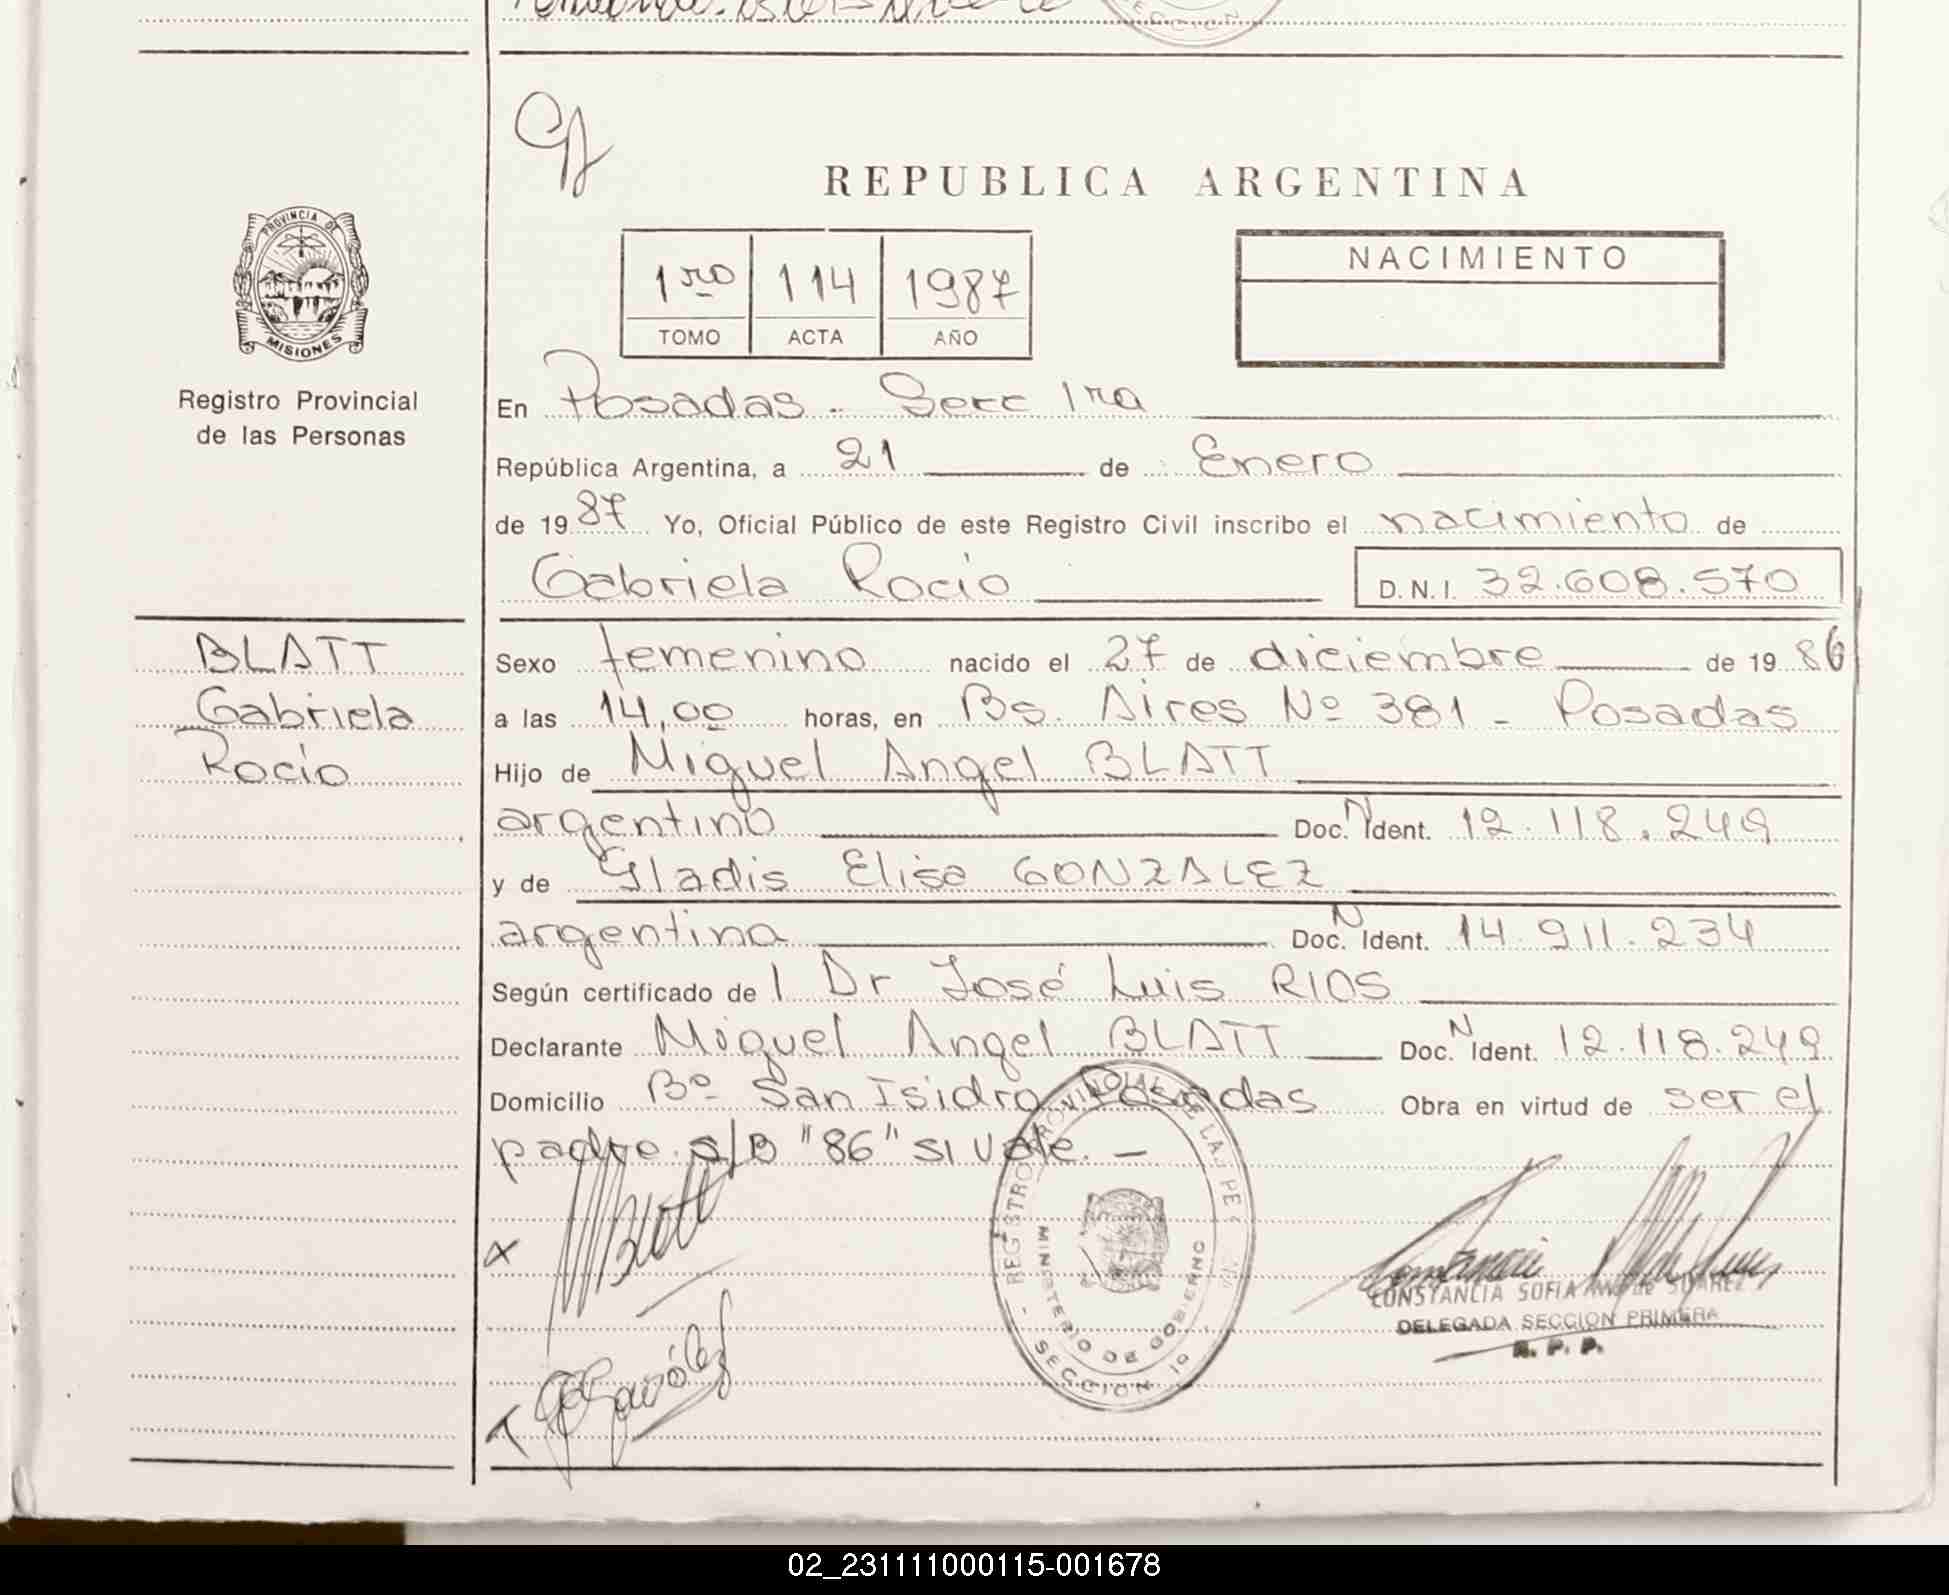 Cf
REPUBLICA ARGENTINA
PROVINCIA DE
MISIONES
Registro Provincial
de las Personas
1ro 114 1987
TOMO ACTA AÑO
NACIMIENTO
En Posadas - Secc 1ra
República Argentina, a 21 de Enero
de 19 87 Yo, Oficial Público de este Registro Civil inscribo el nacimiento de
Gabriela Rocío D. N. I. 32.608.570
BLATT
Gabriela
Rocío
Sexo femenino nacido el 27 de diciembre de 19 86
a las 14,00 horas, en Bs. Aires Nº 381 - Posadas
Hijo de Miguel Angel BLATT
argentino Doc. N Ident. 12.118.249
y de Gladis Elisa GONZALEZ
argentina Doc. N Ident. 14.911.234
Según certificado del Dr José Luis RIOS
Declarante Miguel Angel BLATT Doc. N Ident. 12.118.249
Domicilio Bº San Isidro Posadas Obra en virtud de ser el
padre. s/B "86" SI Vale. -
x Blatt
REGISTRO PROVINCIAL DE LAS PE
MINISTERIO DE GOBIERNO
- SECCION 1º -
CONSTANCIA SOFIA de SUAREZ
DELEGADA SECCION PRIMERA
R. P. P.
02_231111000115-001678